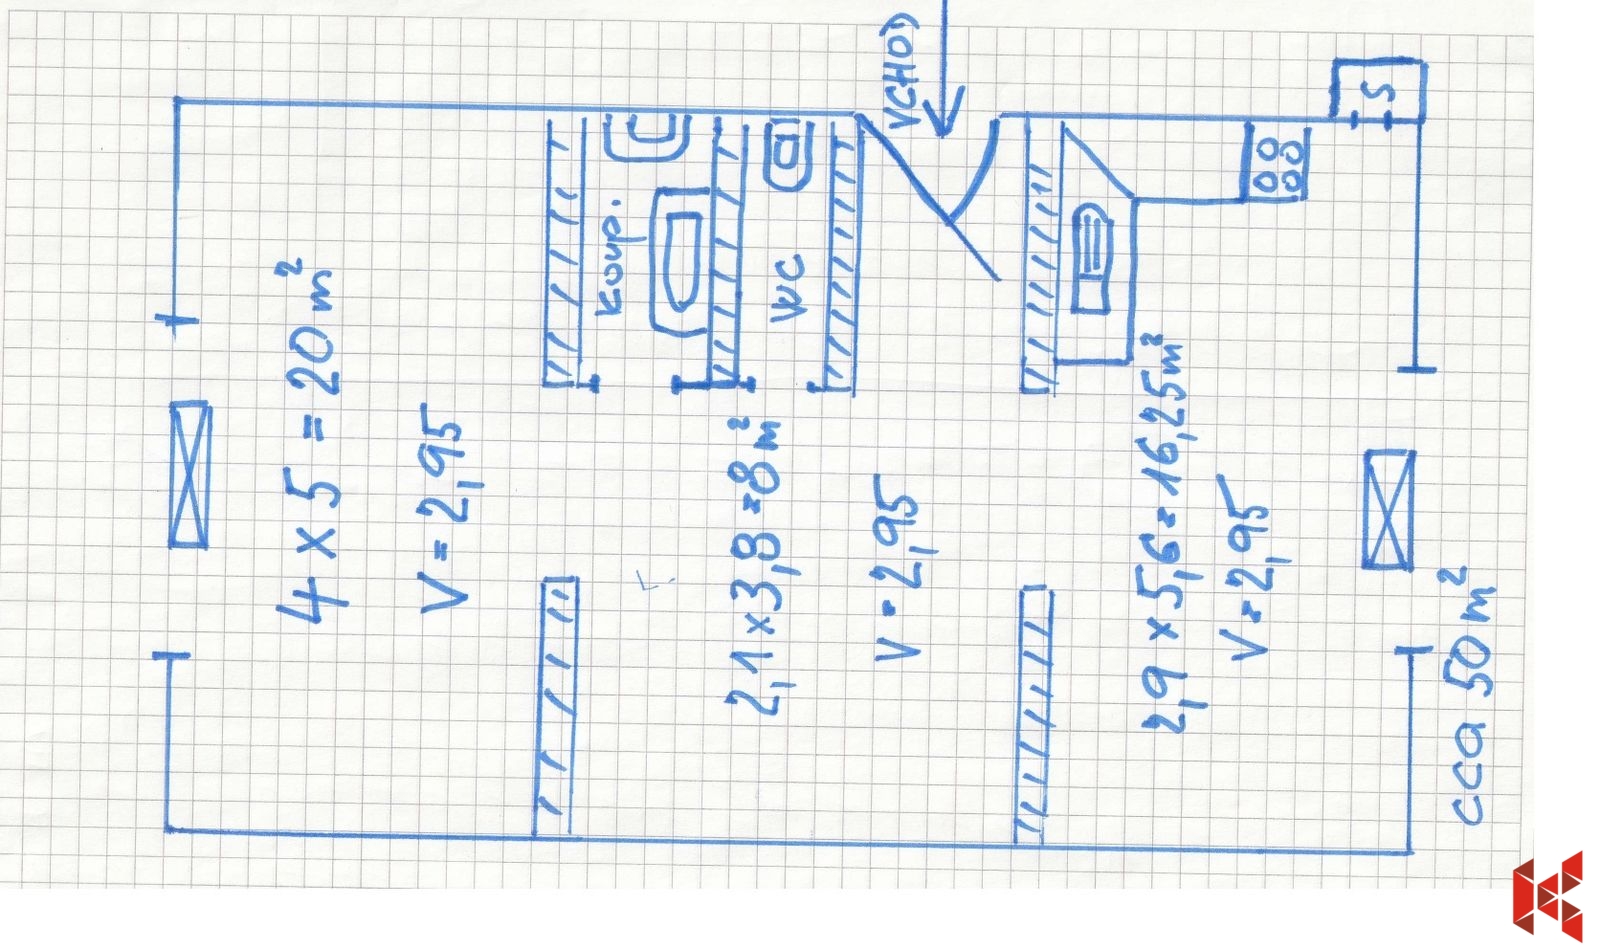 VCHOD
S
koup.
WC
4 x 5 = 20 m²
V = 2,95
2,1 x 3,8 = 8 m²
V = 2,95
2,9 x 5,6 = 16,25 m²
V = 2,95
cca 50 m²